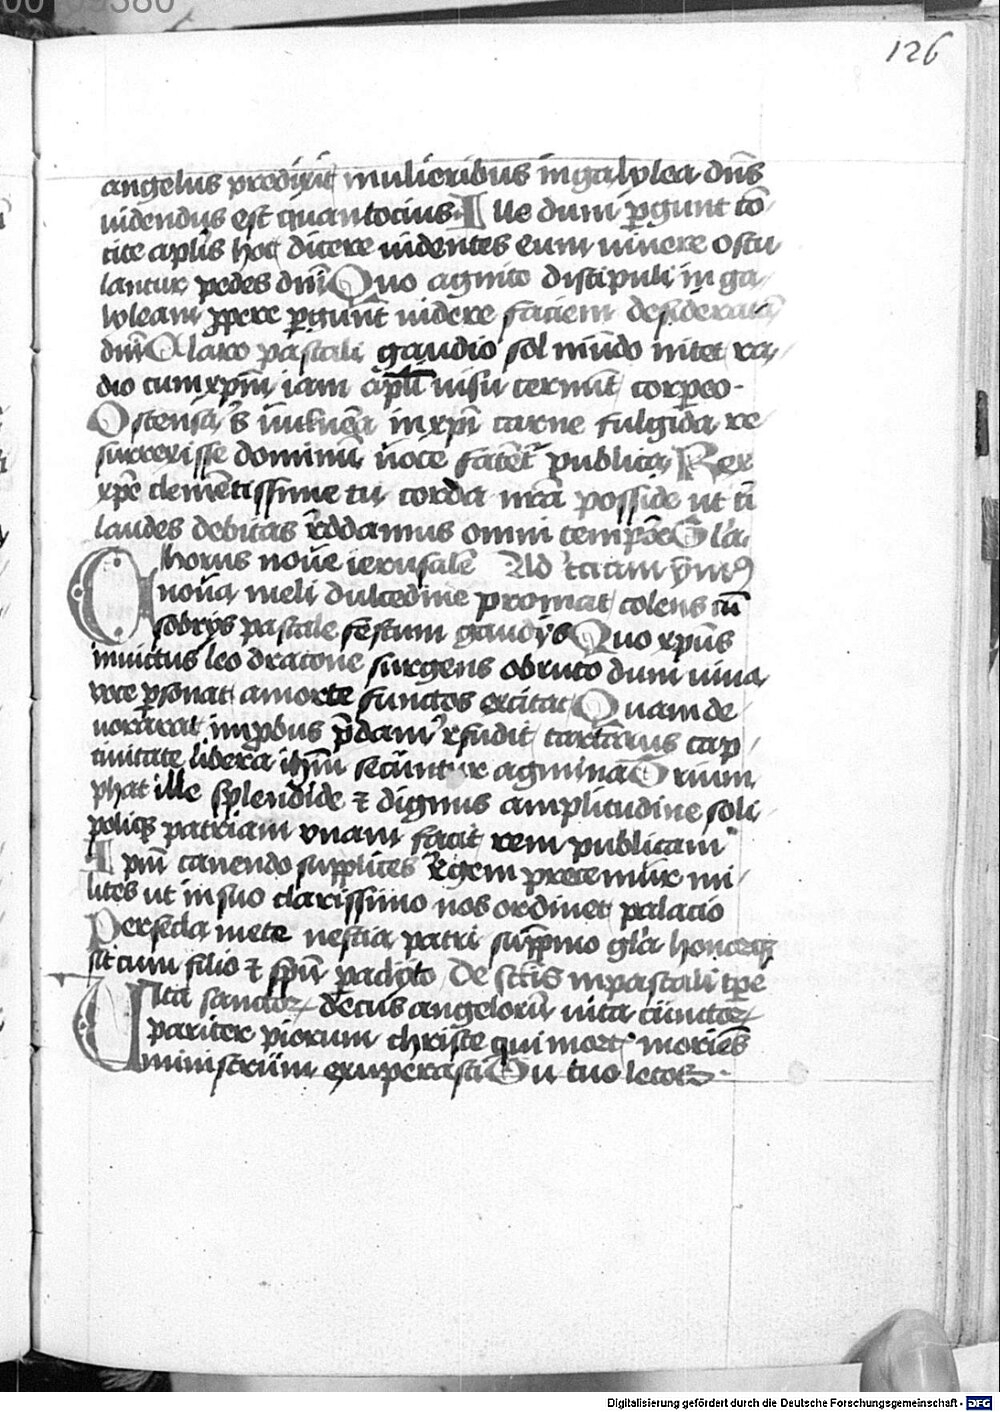 126
angelus predixit mulieribus in galylea dn̄s
uidendus est quantocius Ille dum ꝑgunt cō
cite apl̄is hoc dicere uidentes eum uiuere oscu
lantur pedes dn̄i Quo agnito discipuli in ga
lyleam ꝓpere ꝑgunt uidere faciem desideratā
dn̄i Claro pascali gaudio sol mūdo nitet ra
dio cum xp̄m iam apl̄i uisu cernūt corpeo
Ostensa s̄ uulnēa in xp̄i carne fulgida re
surrexisse dominū uoce fatēt publica Rex
xp̄e clemētissime tu corda nr̄a posside ut t̄i
laudes debitas r̄ddamus omni tempōe Gl̄a
Chorus noūe ierusalē Ad c̄iam ymꝰ
noūa meli dulcedine promat colens cū
sobrijs pascale festum gaudijs Quo xp̄us
inuictus leo dracone surgens obruto dum uiua
uoce ꝑsonat a morte functos excitat Quam de
uorarat imꝓbus p̄dam r̄fudit tartarus cap
tiuitate libera ih̄m secūntur agmina Trium
phat ille splendide ⁊ dignus amplitudine soli
poliqꝫ patriam vnam facit rem publicam
Ipm̄ canendo supplices r̄gem precemur mi
lites ut in suo clarissimo nos ordinet palacio
Per secla mete nescia patri sup̄mo gl̄a honorqꝫ
sit cum filio ⁊ sp̄u paclyto De sc̄tis in pascali tp̄e
Uita sanctoꝝ decus angeloru uita cūnctoꝝ
pariter piorum christe qui mort moriēs
ministrum exuperasti Tu tuo letoꝝ
Digitalisierung gefördert durch die Deutsche Forschungsgemeinschaft - DFG